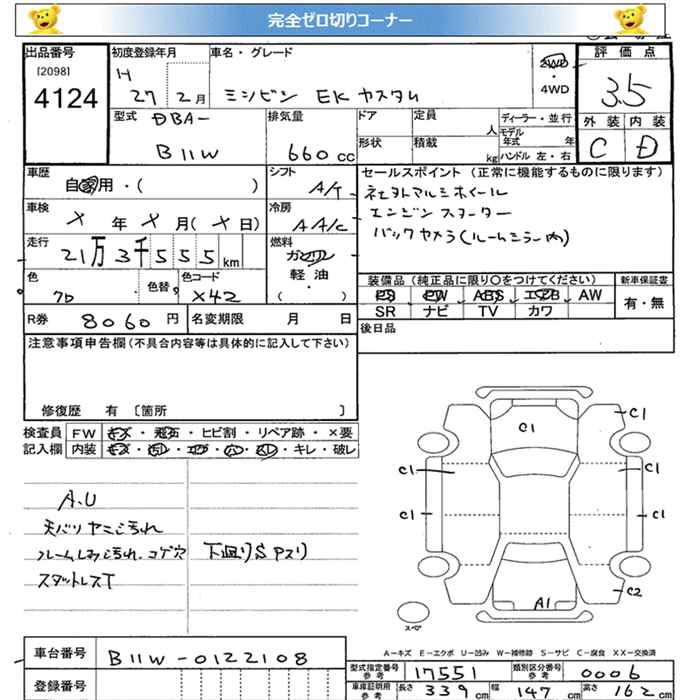 完全ゼロ切りコーナー
出品番号
[2098]
4124
初度登録年月
H
27 2月
車名・グレード
ミツビシ EKカスタム
2WD
・
4WD
評価点
3.5
外装 内装
C D
型式 DBA-
B11W
排気量
660 cc
ドア
形状
定員 人
積載 kg
ディーラー・並行
モデル年式 年
ハンドル 左・右
車歴
自家用・( )
シフト
A/T
車検
X 年 X 月( X 日)
冷房
AA/C
走行
21万3千555km
燃料
ガソリン
軽油
( )
色
色替
色コード
X42
R券 8060 円
名変期限 月 日
セールスポイント(正常に機能するものに限ります)
社外アルミホイール
エンジンスターター
バックカメラ(ルームミラー内)
装備品(純正品に限り○をつけてください)
新車保証書
PS PW ABS エアB AW
SR ナビ TV カワ
有・無
後日品
注意事項申告欄(不具合内容等は具体的に記入して下さい)
修復歴 有 〔箇所 〕
検査員 FW キズ・飛石・ヒビ割・リペア跡・×要
記入欄 内装 キズ・汚レ・コゲ・穴・スレ・キレ・破レ
A.U
天バリヤニ汚れ
フレームしみ汚れ、コゲ穴
スタットレスT
下廻りSアスリ
C1
C1
C1
C1
C1
C1
C2
A1
スペア
A－キズ E－エクボ U－凹み W－補修跡 S－サビ C－腐食 XX－交換済
車台番号 B11W-0122108
登録番号
型式指定番号参考 17551
類別区分番号参考 0006
車庫証明用参考 長さ 339cm 幅 147cm 高さ 162cm